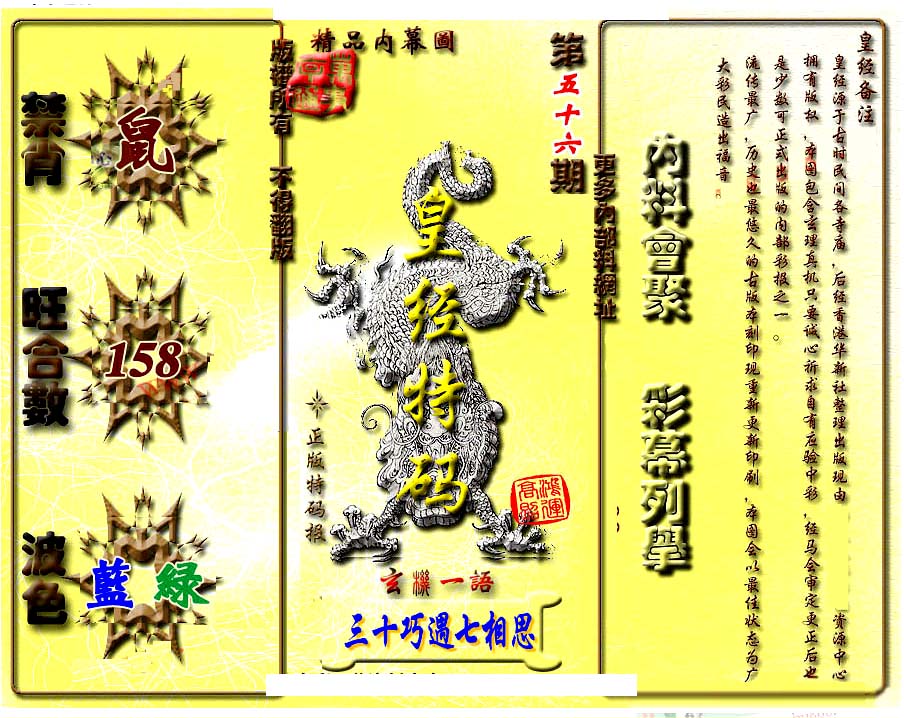 精品内幕圖
第五十六期
版權所有 不得翻版
更多內部料網址
禁肖
鼠
旺合數
158
波色
藍 綠
皇经特码
正版特码报
鴻運高照
玄機一語
三十巧遇七相思
內料會聚
彩幕列舉
皇经备注
皇经源于古时民间各寺庙，后经香港华新社整理出版现由 资源中心
拥有版权，本图包含玄理真机只要诚心祈求自有应验中彩，经马会审定更正后也
是少数可正式出版的内部彩报之一。
流传最广，历史也最悠久的古版本刻印现重新更新印刷，本图会以最佳状态为广
大彩民造出福音